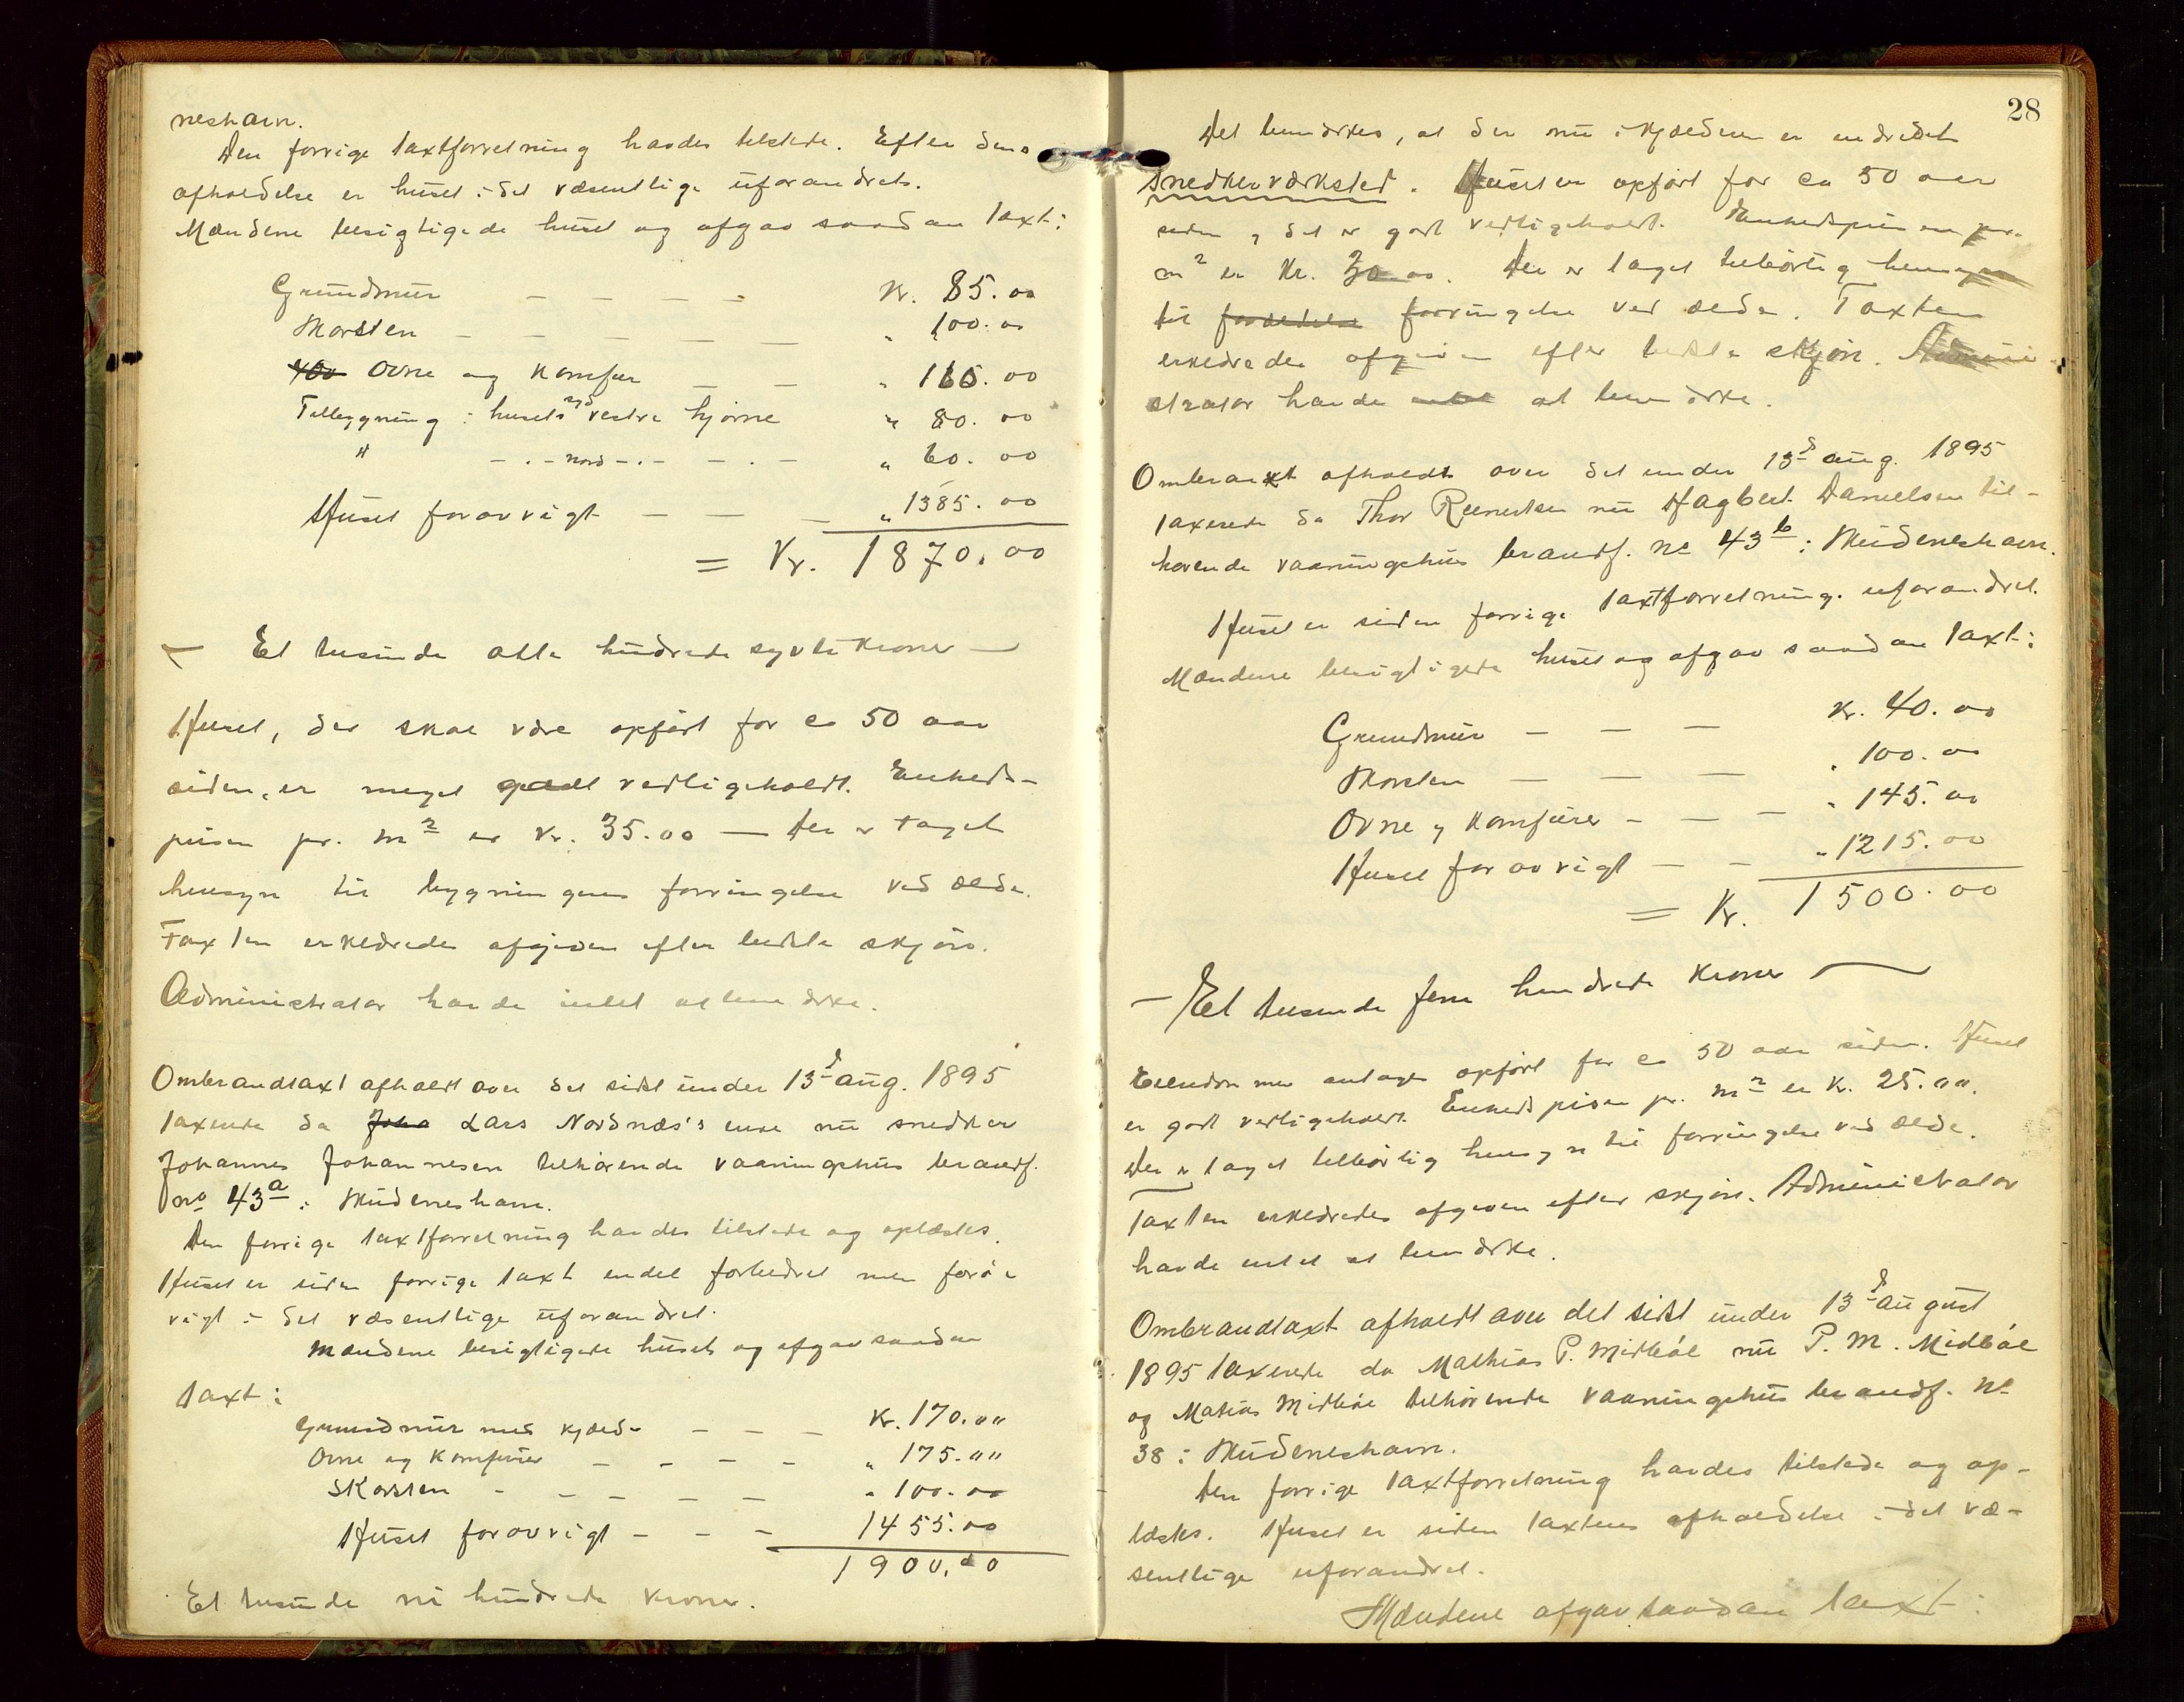 neshavn.
Den forrige taxtforretning havdes tilstede. Efter dens
afholdelse er huset i det væsentlige uforandret.
Mændene besigtigede huset og afgav saadan taxt:
Grundmur — — — — Kr. 85.00
Skorsten — — — — — " 100.00
Ovne og komfur — — " 160.00
Tilbygning i husets syd vestre hjørne " 80.00
" — . — nord — . — — . — " 60.00
Huset forøvrigt — — — " 1385.00
= Kr. 1870.00
— Et tusinde otte hundrede sytti kroner —
Huset, der skal være opført for ca 50 aar
siden, er meget godt vedligeholdt. Enheds-
prisen pr. m² er Kr. 35.00 — Der er taget
hensyn til bygningens forringelse ved ælde.
Taxten erklæredes afgiven efter bedste skjøn.
Administrator havde intet at bemærke.
Ombrandtaxt afholdt over det sidst under 13d aug. 1895
taxerede da Lars Nordnæs's enke nu snedker
Johannes Johannesen tilhørende vaaningshus brandf.
no 43a i Skudeneshavn.
Den forrige taxtforretning havdes tilstede og oplæstes.
Huset er siden forrige taxt endel forbedret men forø-
vrigt i det væsentlige uforandret.
Mændene besigtigede huset og afgav saadan
taxt:
Grundmur med kjælder — — — Kr. 170.00
Ovne og komfurer — — — — " 175.00
Skorsten — — — — — " 100.00
Huset forøvrigt — — — 1455.00
1900.00
Et tusinde ni hundrede kroner.
28
Det bemærkes, at der nu i kjælderen er indredet
snedkerværksted. Huset er opført for ca 50 aar
siden og det er godt vedligeholdt. Enhedsprisen pr.
m² er Kr. 30.00. Der er taget tilbørlig hensyn
til forringelse ved ælde. Taxten
erklæredes afgiven efter bedste skjøn. Admini-
strator havde intet at bemærke.
Ombrantxt afholdt over det under 13d aug. 1895
taxerede da Thor Reinertsen nu Hagbert Danielsen til-
hørende vaaningshus brandf. no 43b i Skudeneshavn.
Huset er siden forrige taxtforretning uforandret.
Mændene besigtigede huset og afgav saadan taxt:
Grundmur — — — Kr. 40.00
Skorsten — — — " 100.00
Ovne og komfurer — — — " 145.00
Huset forøvrigt — — " 1215.00
= Kr. 1500.00
— Et tusinde fem hundrede kroner —
Eiendommen antages opført for ca 50 aar siden. Huset
er godt vedligeholdt. Enhedsprisen pr. m² er Kr. 25.00.
Der er taget tilbørlig hensyn til forringelse ved ælde.
Taxten erklæredes afgiven efter skjøn. Administrator
havde intet at bemærke.
Ombrandtaxt afholdt over det sidst under 13d august
1895 taxerede da Mathias P. Midbøe nu P. M. Midbøe
og Matias Midbøe tilhørende vaaningshus brandf. no
38 i Skudeneshavn.
Den forrige taxtforretning havdes tilstede og op-
læstes. Huset er siden taxtens afholdelse i det væ-
sentlige uforandret.
Mændene afgav saadan taxt: